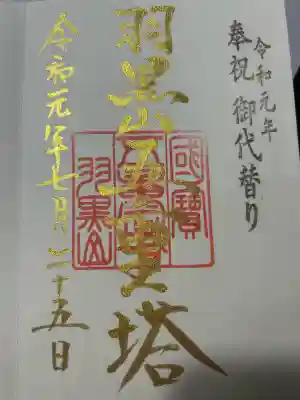 令和元年
奉祝 御代替り
羽黒山五重塔
國寶
五重塔
羽黒山
令和元年七月二十五日